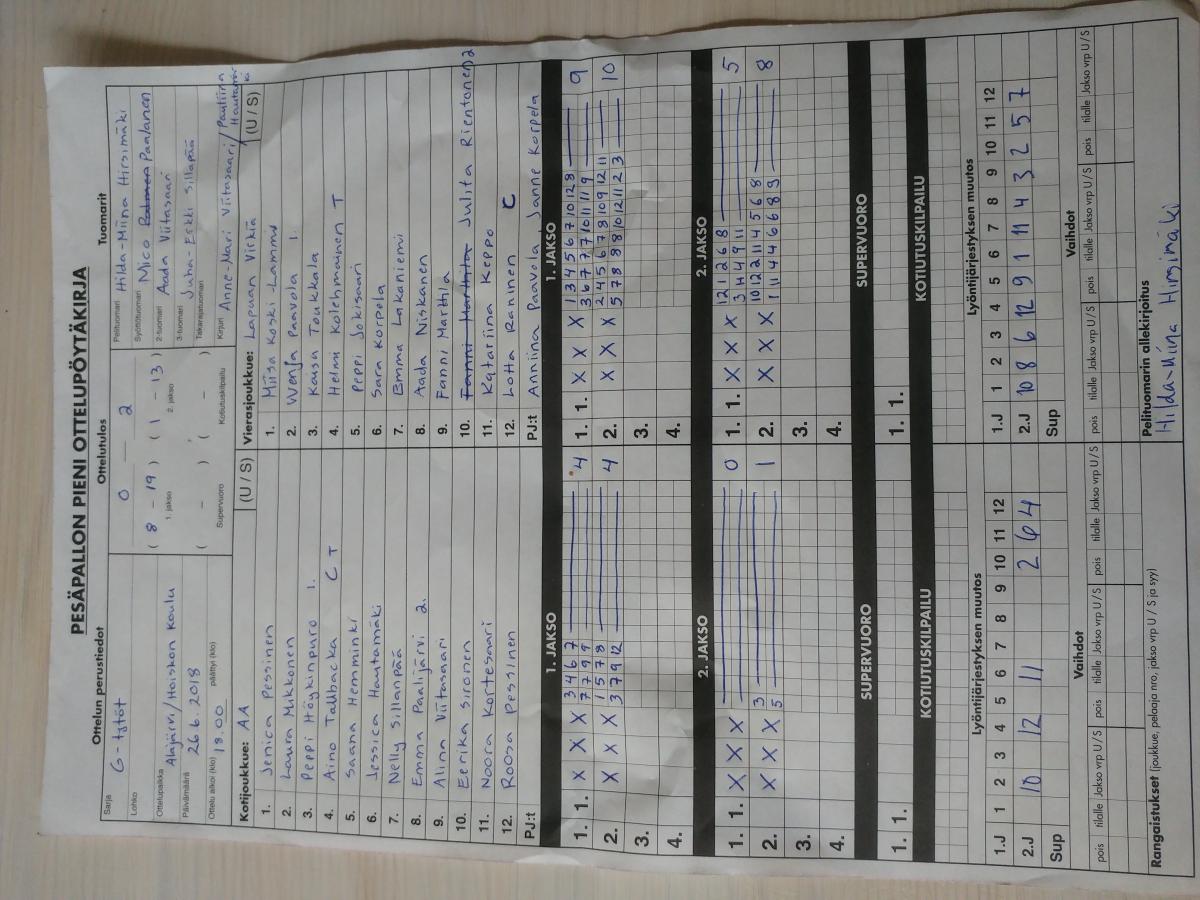 PESÄPALLON PIENI OTTELUPÖYTÄKIRJA
Ottelun perustiedot
Sarja G-tytöt
Lohko
Ottelupaikka Alajärvi/Hoiskon koulu
Päivämäärä 26.6.2018
Ottelu alkoi (klo) 18.00 päättyi (klo)
Ottelutulos
0 — 2
( 8 – 19 ) ( 1 – 13 )
1. jakso 2. jakso
( – ) ( – )
Supervuoro Kotiutuskilpailu
Tuomarit
Pelituomari Hilda-Miina Hirsimäki
Syöttötuomari Mico Paalanen
2-tuomari Aada Viitasaari
3-tuomari Juha-Erkki Sillapää
Takarajatuomari
Kirjuri Anne-Mari Viitasaari/Pauliina
Kotijoukkue: AA (U / S)
1. Jenica Pessinen
2. Laura Mikkonen
3. Peppi Höykinpuro 1.
4. Aino Tallbacka C T
5. Saana Hemminki
6. Jessica Hautamäki
7. Nelly Sillanpää
8. Emma Paalijärvi 2.
9. Alina Viitasaari
10. Eerika Sironen
11. Noora Kortesaari
12. Roosa Pessinen
PJ:t
Vierasjoukkue: Lapuan Virkiä (U / S)
1. Miisa Koski-Lammi
2. Wenja Paavola 1.
3. Kaisa Toukkala
4. Helmi Kolehmainen T
5. Peppi Jokisaari
6. Sara Korpela
7. Emma Lakaniemi
8. Aada Niskanen
9. Fanni Marttila
10. Fanni Marttila Julia Rientonen 2
11. Katariina Keppo
12. Lotta Raninen C
PJ:t Anniina Paavola Janne Korpela
1. JAKSO
1. 1. X X X 3 4 6 7 4
7 7 9 9
2. X X X 1 5 7 8 4
3 7 9 12
3.
4.
1. JAKSO
1. 1. X X X 1 3 4 5 6 7 10 12 8 9
3 6 7 7 10 11 11 9
2. X X X 2 4 5 6 7 8 10 9 12 11 10
5 7 8 8 8 10 12 11 2 3
3.
4.
2. JAKSO
1. 1. X X X 0
2. X X X 3 1
5
3.
4.
2. JAKSO
1. 1. X X X 12 1 2 6 8 5
3 4 4 9 11
2. X X X 10 12 2 11 4 5 6 8 8
1 11 4 4 6 8 9 3
3.
4.
SUPERVUORO
1. 1.
SUPERVUORO
1. 1.
KOTIUTUSKILPAILU
KOTIUTUSKILPAILU
Lyöntijärjestyksen muutos
1.J 1 2 3 4 5 6 7 8 9 10 11 12
2.J 10 12 11 2 6 4
Sup
Lyöntijärjestyksen muutos
1.J 1 2 3 4 5 6 7 8 9 10 11 12
2.J 10 8 6 12 9 1 11 4 3 2 5 7
Sup
Vaihdot
pois tilalle Jakso vrp U / S pois tilalle Jakso vrp U / S pois tilalle Jakso vrp U / S
Vaihdot
pois tilalle Jakso vrp U / S pois tilalle Jakso vrp U / S pois tilalle Jakso vrp U / S
Rangaistukset (joukkue, pelaaja nro, jakso vrp U / S ja syy)
Pelituomarin allekirjoitus
Hilda-Miina Hirsimäki